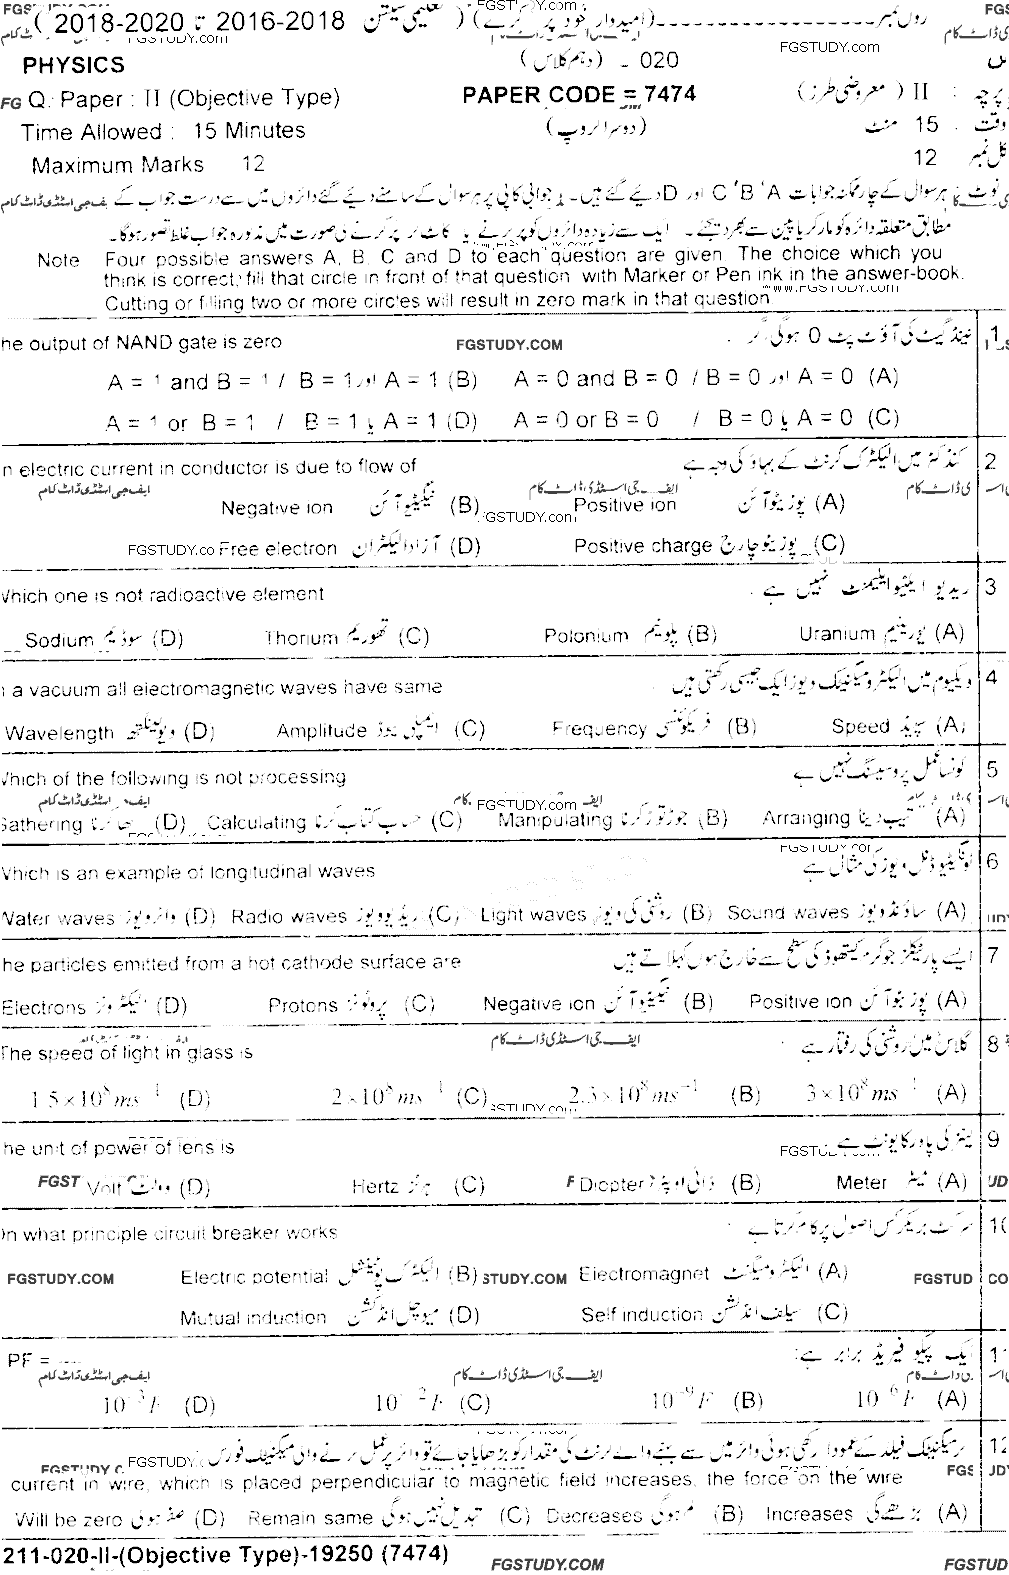 2016-2018 تا 2018-2020 تعلیمی سیشن
FGSTUDY.com
PHYSICS
020 - (دہم کلاس)
Q. Paper : II (Objective Type)
PAPER CODE = 7474
پرچہ : II (معروضی طرز)
Time Allowed : 15 Minutes
(دوسرا گروپ)
وقت : 15 منٹ
Maximum Marks 12
کل نمبر 12
ہر سوال کے چار ممکنہ جوابات A ' B ' C اور D دیئے گئے ہیں۔ جوابی کاپی پر ہر سوال کے سامنے دیئے گئے دائروں میں سے درست جواب کے
مطابق متعلقہ دائرہ کو مارکر یا پین سے بھر دیجئے۔ ایک سے زیادہ دائروں کو پر کرنے یا کاٹ کر پر کرنے کی صورت میں مذکورہ جواب غلط تصور ہوگا۔
Note Four possible answers A, B, C and D to each question are given. The choice which you
think is correct, fill that circle in front of that question with Marker or Pen ink in the answer-book.
Cutting or filling two or more circles will result in zero mark in that question
www.FGSTUDY.com
1 نینڈ گیٹ کی آؤٹ پٹ 0 ہوگی اگر
he output of NAND gate is zero
FGSTUDY.COM
(A) A = 0 اور B = 0 / A = 0 and B = 0 (B) A = 1 اور B = 1 / A = 1 and B = 1
(C) A = 0 یا B = 0 / A = 0 or B = 0 (D) A = 1 یا B = 1 / A = 1 or B = 1
2 کنڈکٹر میں الیکٹرک کرنٹ کے بہاؤ کی وجہ ہے
n electric current in conductor is due to flow of
ایف جی اسٹڈی ڈاٹ کام
(A) پوزیٹو آئن Positive ion (B) نیگیٹو آئن Negative ion
FGSTUDY.com
(C) پوزیٹو چارج Positive charge (D) آزاد الیکٹران Free electron
3 ریڈیو ایکٹیو ایلیمنٹ نہیں ہے
Which one is not radioactive element
(A) یورینیم Uranium (B) پلونیم Polonium (C) تھوریم Thorium (D) سوڈیم Sodium
4 ویکیوم میں الیکٹرومیگنیٹک ویوز ایک جیسی رکھتی ہیں
a vacuum all electromagnetic waves have same
(A) سپیڈ Speed (B) فریکوئنسی Frequency (C) ایمپلی ٹیوڈ Amplitude (D) ویولینگتھ Wavelength
5 کونسا عمل پروسیسنگ نہیں ہے
Which of the following is not processing
FGSTUDY.com
(A) ترتیب دینا Arranging (B) جوڑ توڑ کرنا Manipulating (C) حساب کتاب کرنا Calculating (D) اکٹھا کرنا Gathering
6 لونگیٹیوڈنل ویوز کی مثال ہے
Which is an example of longitudinal waves
(A) ساؤنڈ ویوز Sound waves (B) روشنی کی ویوز Light waves (C) ریڈیو ویوز Radio waves (D) واٹر ویوز Water waves
7 ایسے پارٹیکلز جو گرم کیتھوڈ کی سطح سے خارج ہوں کہلاتے ہیں
he particles emitted from a hot cathode surface are
(A) پوزیٹو آئن Positive ion (B) نیگیٹو آئن Negative ion (C) پروٹونز Protons (D) الیکٹرونز Electrons
8 گلاس میں روشنی کی رفتار ہے
ایف جی اسٹڈی ڈاٹ کام
The speed of light in glass is
(A) 3×10⁸ ms⁻¹ (B) 2.3×10⁸ ms⁻¹ (C) 2×10⁸ ms⁻¹ (D) 1.5×10⁸ ms⁻¹
9 لینز کی پاور کا یونٹ ہے
he unit of power of lens is
(A) میٹر Meter (B) ڈائی اوپٹر Diopter (C) ہرٹز Hertz (D) وولٹ Volt
10 سرکٹ بریکر کس اصول پر کام کرتا ہے
On what principle circuit breaker works
(A) الیکٹرومیگنٹ Electromagnet (B) الیکٹرک پوٹینشل Electric potential
FGSTUDY.COM
(C) سیلف انڈکشن Self induction (D) میوچل انڈکشن Mutual induction
11 ایک پیکو فیریڈ برابر ہے:
PF = ----
ایف جی اسٹڈی ڈاٹ کام
(A) 10⁻⁶F (B) 10⁻⁹F (C) 10⁻¹²F (D) 10⁻³F
12 اگر میگنیٹک فیلڈ کے عموداً رکھی ہوئی وائر میں سے بہنے والے کرنٹ کی مقدار کو بڑھایا جائے تو وائر پر عمل کرنے والی میگنیٹک فورس
current in wire, which is placed perpendicular to magnetic field increases, the force on the wire
(A) بڑھے گی Increases (B) کم ہوگی Decreases (C) تبدیل نہیں ہوگی Remain same (D) صفر ہوگی Will be zero
211-020-II-(Objective Type)-19250 (7474)
FGSTUDY.COM